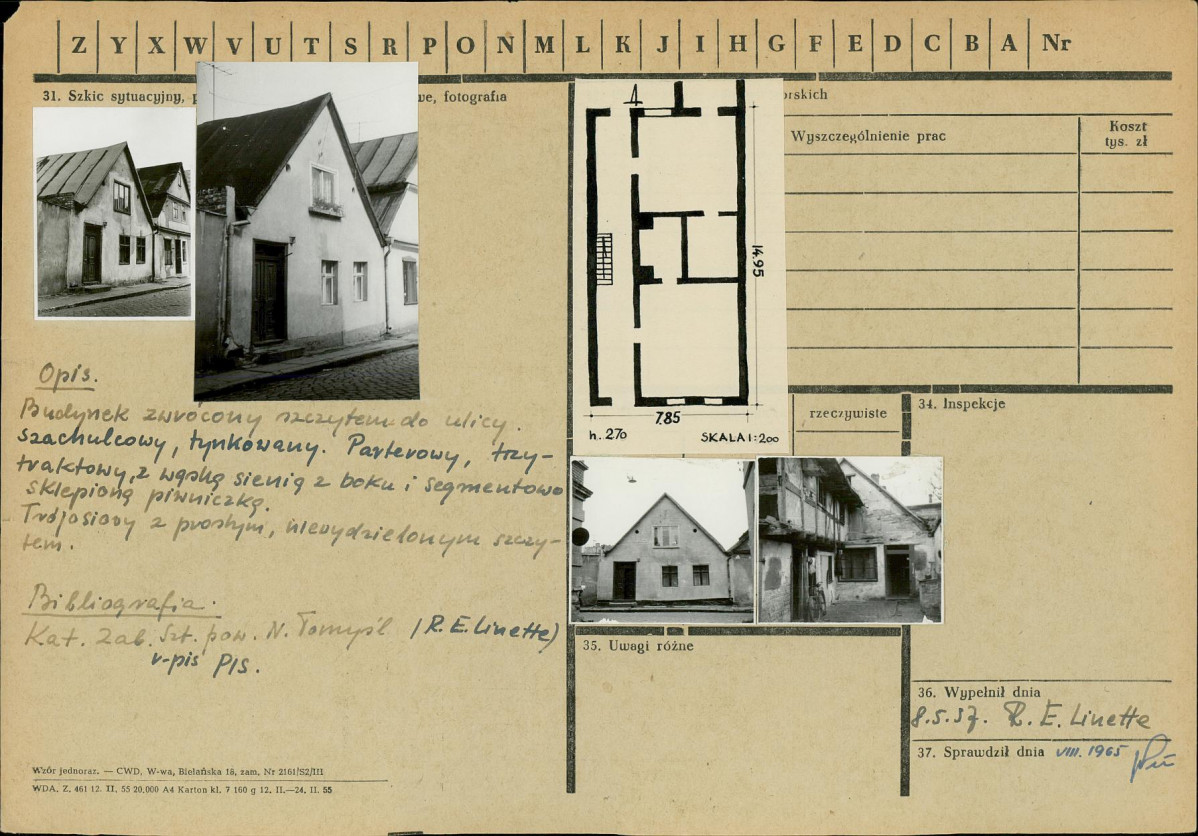 Z Y X W V U T S R P O N M L K J I H G F E D C B A Nr
31. Szkic sytuacyjny, p
we, fotografia
orskich
Wyszczególnienie prac
Koszt
tys. zł
14.95
7.85
h. 270
SKALA 1:200
rzeczywiste
34. Inspekcje
Opis.
Budynek zwrócony szczytem do ulicy.
szachulcowy, tynkowany. Parterowy, trzy-
traktowy, z wąską sienią z boku i segmentowo
sklepioną piwniczką.
Trójosiowy z prostym, niewydzielonym szczy-
tem.
Bibliografia.
Kat. Zab. Szt. pow. N. Tomyśl (R. E. Linette)
v-pis PIS.
35. Uwagi różne
36. Wypełnił dnia
8.5.57. R. E. Linette
37. Sprawdził dnia VIII. 1965
Wzór jednoraz. — CWD, W-wa, Bielańska 18, zam. Nr 2161/S2/III
WDA. Z. 461 12. II. 55 20.000 A4 Karton kl. 7 160 g 12. II.—24. II. 55